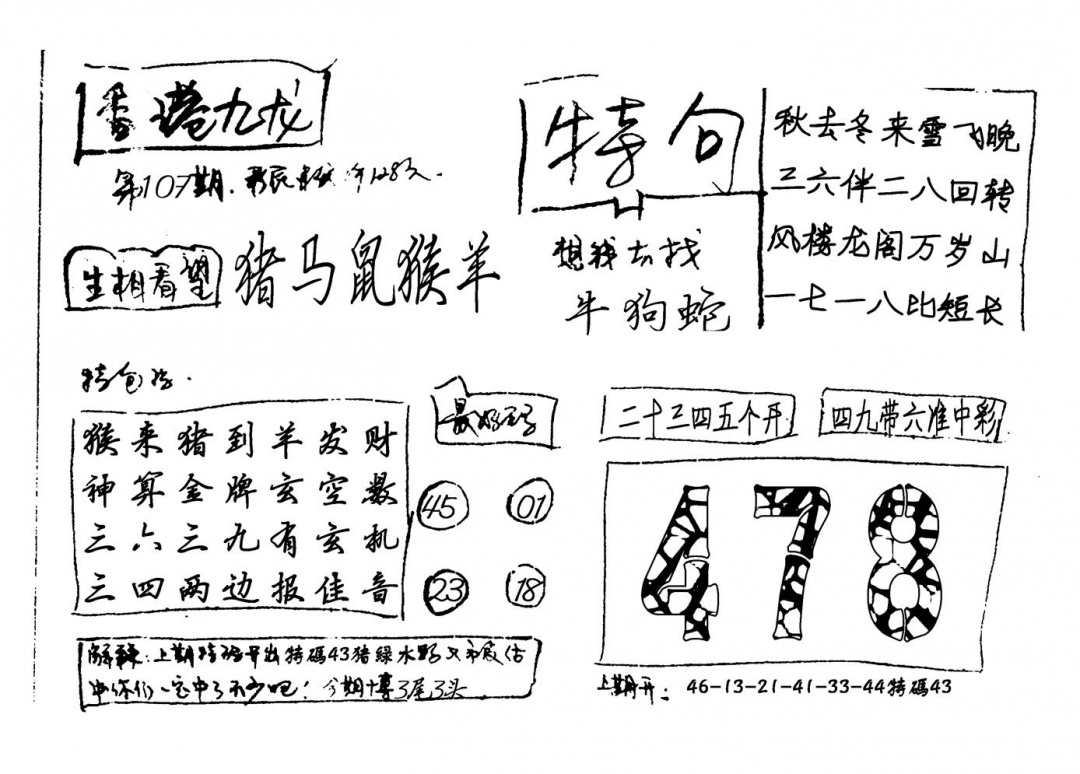 香港九龙
第107期.
特句
想我去找
牛狗蛇
秋去冬来雪飞晚
三六伴二八回转
风楼龙阁万岁山
一七一八比短长
生相看望
猪马鼠猴羊
特包公.
猴来猪到羊发财
神算金牌玄空数
三六三九有玄机
三四两边报佳音
最好
45 01
23 18
二十三四五个开
四九带六准中彩
478
解释:上期特码开出特碼43猪绿水
中你们一定中了不少吧!今期博3尾3头
上期开: 46-13-21-41-33-44特碼43